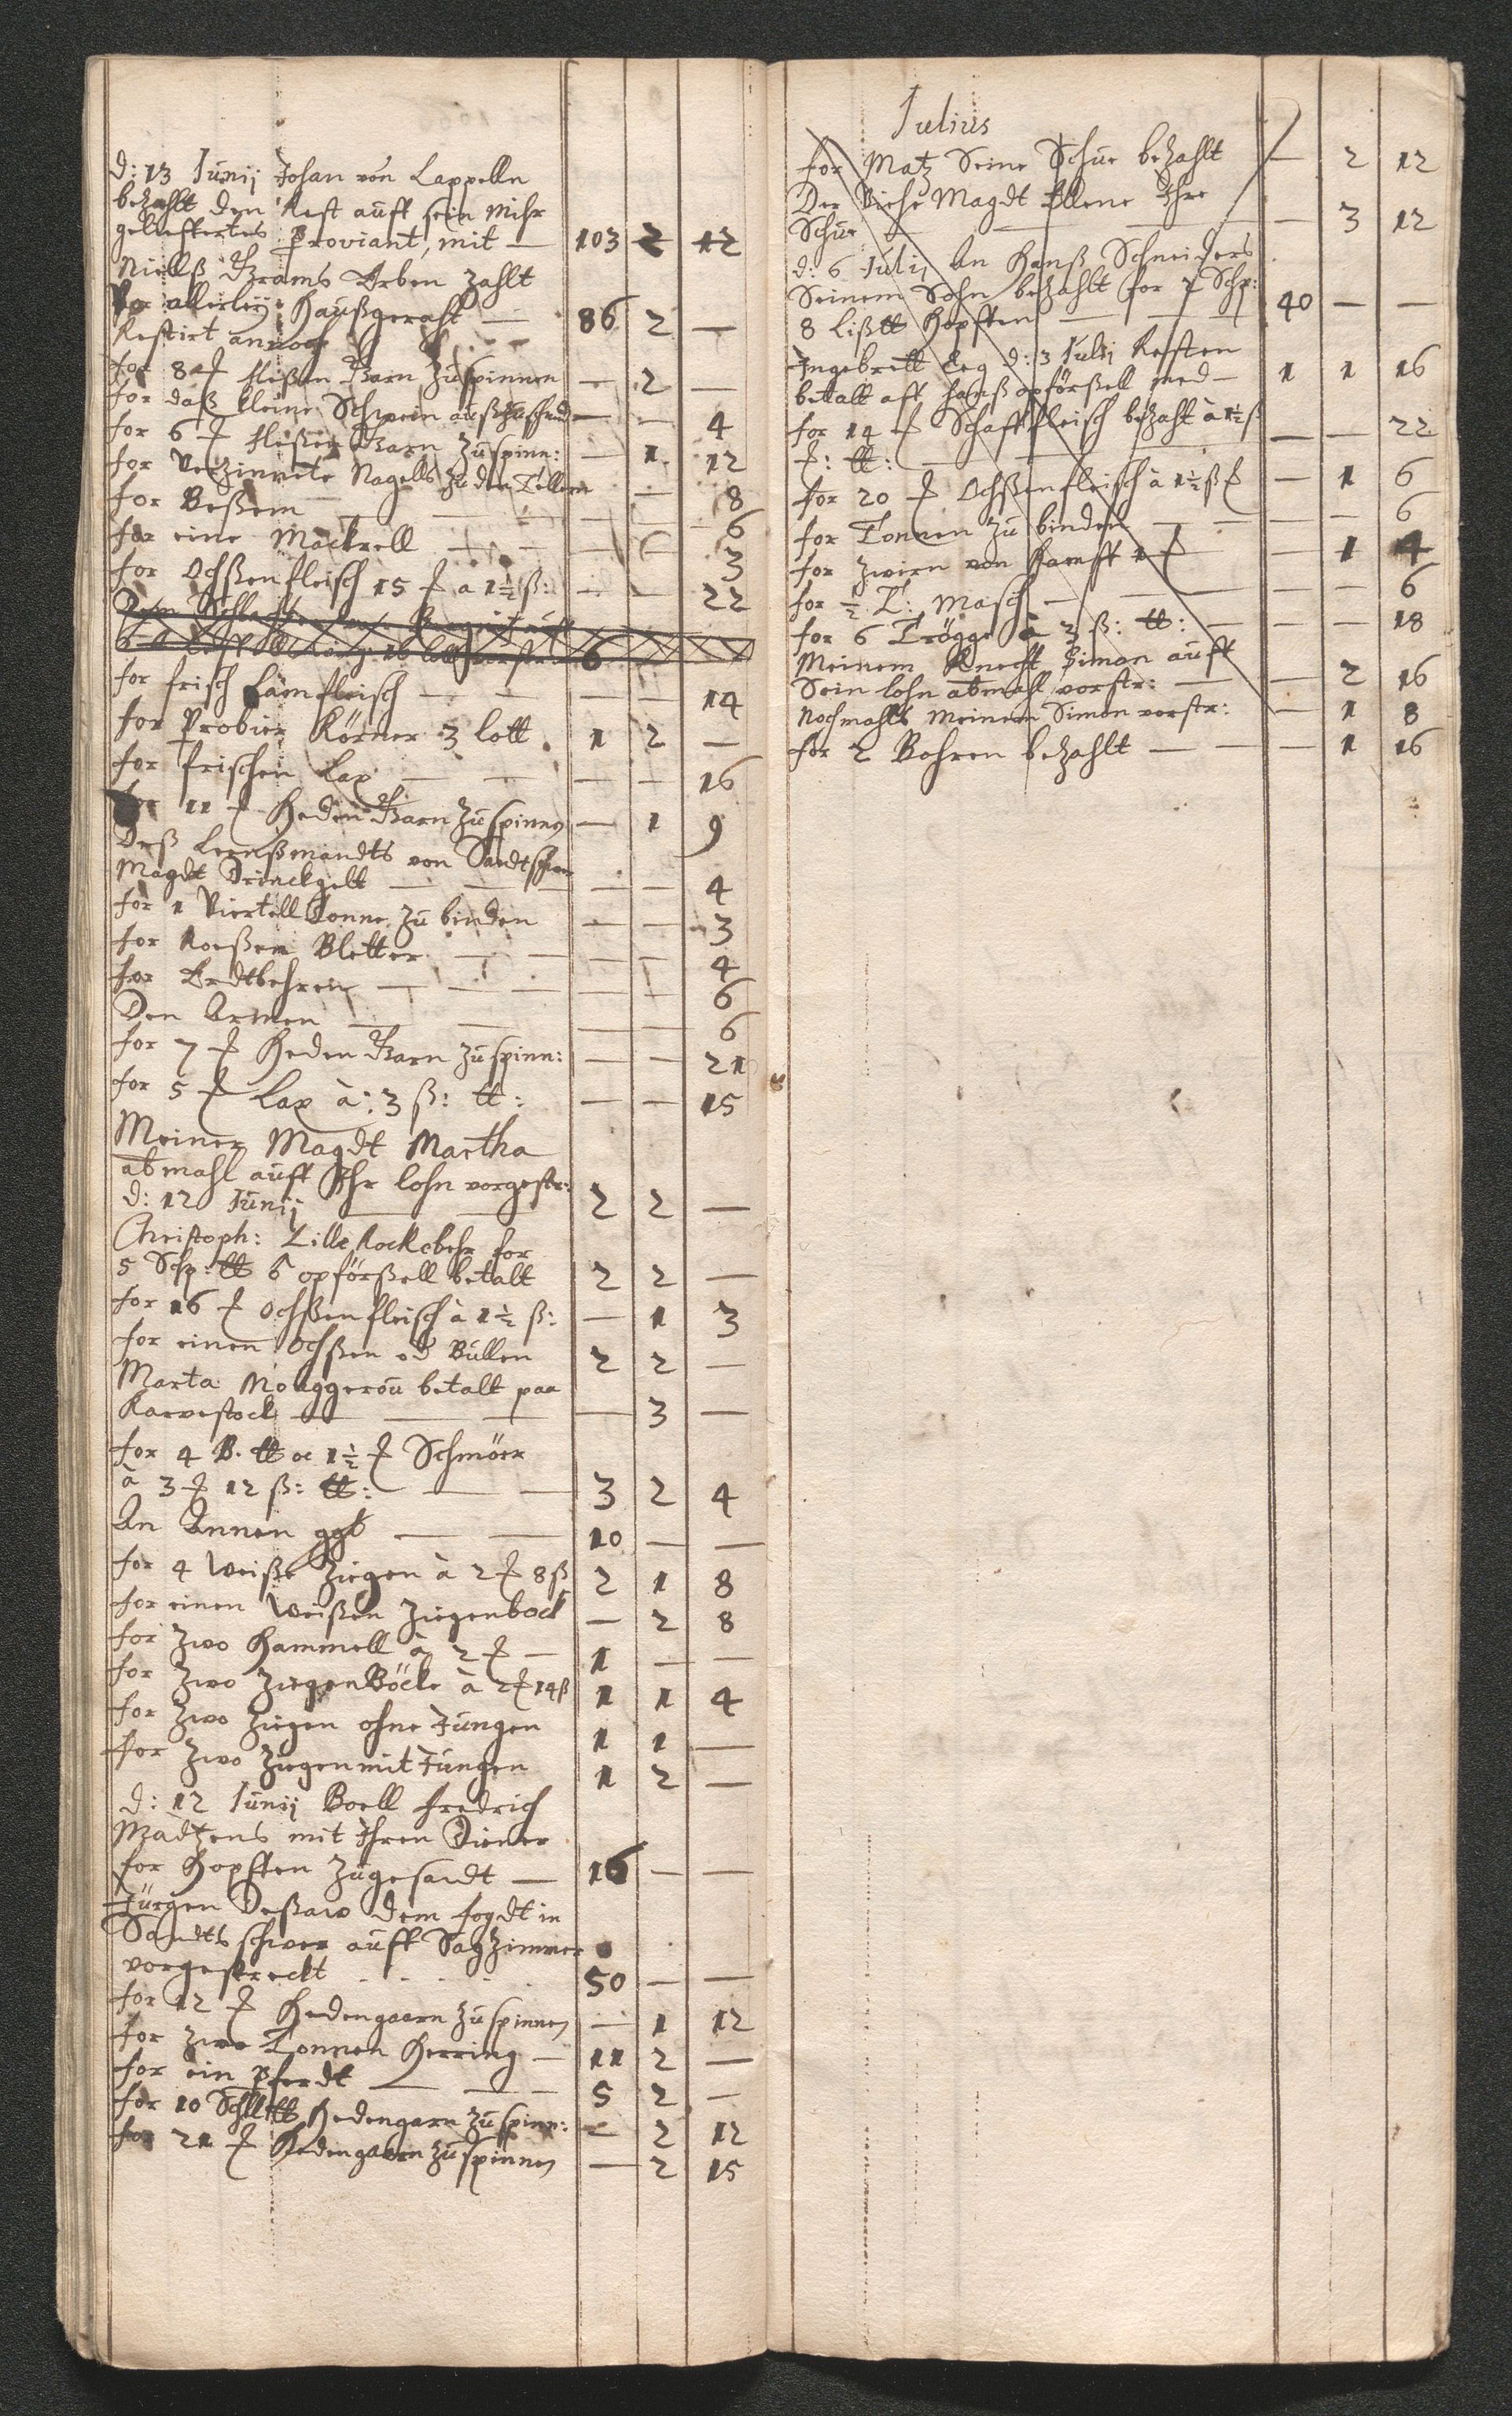 d: 13 Junij Johan von Cappelln
bezahlt den Rest auff sein mihr
gelieffertes Proviant, mit — 103 2 12
Niellß Brams Erben zahlt
Vor allerleij Haußgeraht — 86 2 —
Restirt annoch
for 8 ₰ fleßen Garn zu spinnen — 2 —
for daß kleine Schwein außzuschnd — — 4
for 6 ₰ fleßen Garn zu spinn: — 1 12
for Verzinnete Nagells zu den Tellern — 8
for Beßem — — — — 6
for eine Mackrell — — — — 3
for Ochßenfleisch 15 ₰ a 1½ ß: — — 22
6
for frisch Lamfleisch — — — — 14
for Probier Körner 3 lott 1 2 —
for frischen Lax — — — — 16
for 11 ₰ Heden Garn zu spinnen — 1 9
Deß Lenßmandts von
Magdt Drinckgelt — — — — 4
for 1 Viertell Tonne zu binden — — 3
for Roeßen Bletter — — — — 4
for Erdtbehren — — — — — 6
Den Armen — — — — 6
for 7 ₰ Heden Garn zu spinn: — — 21
for 5 ₰ Lax à: 3 ß: ℔: — — 15
Meiner Magdt Martha
abmahl auff Ihr lohn vorgestr:
d: 12 Junij — — 2 2 —
Christoph: Lille for
5 Schp: ℔ 6 opförßell betalt 2 2 —
for 16 ₰ Ochßenfleisch à 1½ ß: — 1 3
for einen Ochßen od Bullen 2 2 —
Marta betalt paa
— — — — 3 —
for 4 B. ℔ oc 1½ ₰ Schmöer
à 3 ₰ 12 ß: ℔: — — 3 2 4
An Annen ggb — — 10 — —
for 4 Weiße Ziegen à 2 ₰ 8 ß 2 1 8
for einen Weißen Ziegenbock — 2 8
for Zwo Hammell à 2 ₰ — 1 — —
for Zwo Ziegen Böcke à 2 ₰ 14 ß 1 1 4
for Zwo Ziegen ohne Jungen 1 1 —
for Zwo Ziegen mit Jungen 1 2 —
d: 12 Junij Boell Fredrich
Madtzens mit Ihren Diener
for Hopffen zugesandt — 16 — —
Jürgen Deßaw dem fogdt in
auff Sagzimmer
vorgestreckt . . . . . 50 — —
for 12 ₰ Hedengaarn zu spinnen — 1 12
for Zwo Tonnen Herring — 11 2 —
for ein Pferdt — — — 5 2 —
for 10 Hedengarn zu spinn: — 2 12
for 21 ₰ Hedengaarn zu spinnen — 2 15
Julius
for Matz Seine Schue bezahlt — 2 12
Der Viehe Magdt Ellene Ihre
Schue — — — — 3 12
d: 6 Julij An Hanß Schneiders
Seinem Sohn bezahlt for 7 Schp:
8 Lißtt Hopffen — — — 40 — —
Ingebrett Eeg d: 3 Julij Resten
betalt aff hanß opförßell med — 1 1 16
for 14 ₰ Schaffleisch bezahlt à 1½ ß
₰: ℔: — — — — — 22
for 20 ₰ Ochßenfleisch à 1½ ß ₰ — 1 6
for Tonnen zu binden — — — — 6
for Zwirn von Hanff 1 ₰ — 1 4
for ½ T: Masch — — — — — 6
for 6 Trögge à 3 ß: ℔: — — — 18
Meinem Knecht Simon auff
Sein lohn abmahl vorstr: — — 2 16
Nochmahls meinem Simon vorstr: — 1 8
for 2 Bohren bezahlt — — — 1 16